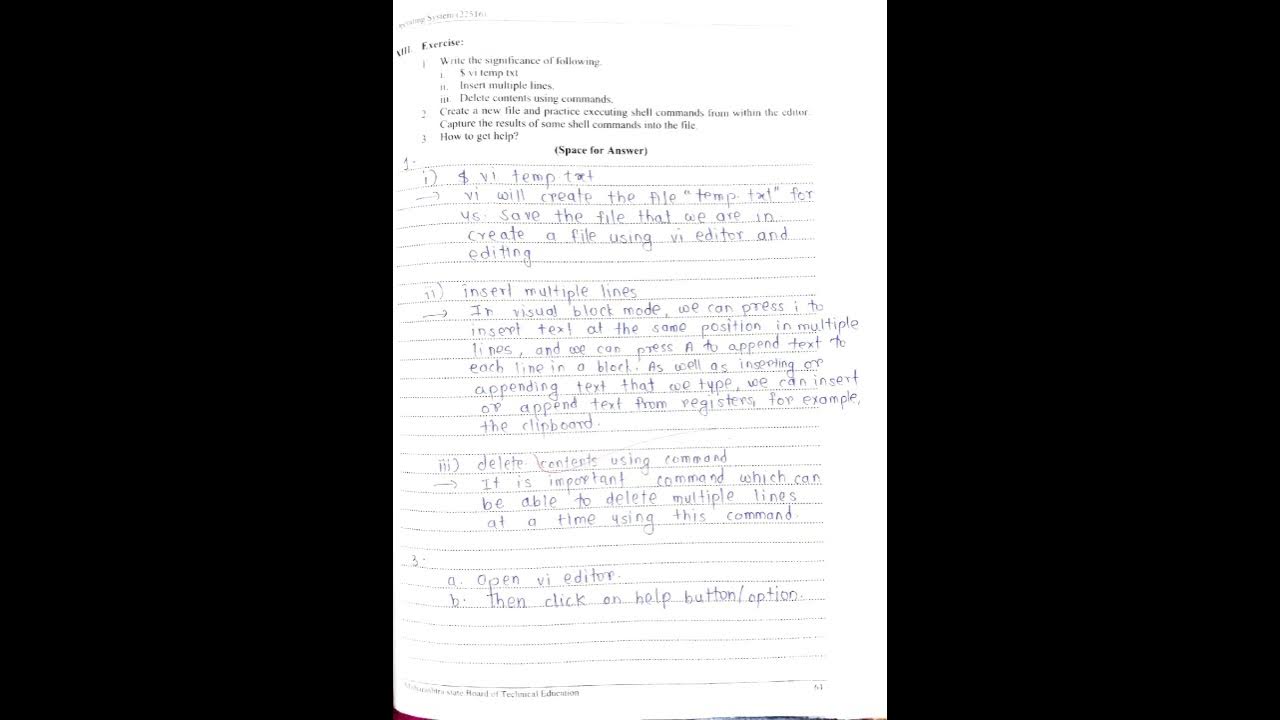 Operating System (22516)
XIII. Exercise:
1 Write the significance of following.
i. $ vi temp txt
ii. Insert multiple lines.
iii. Delete contents using commands.
2 Create a new file and practice executing shell commands from within the editor.
Capture the results of some shell commands into the file.
3 How to get help?
(Space for Answer)
1.
i) $ vi temp txt
→ vi will create the file "temp. txt" for
us. save the file that we are in
create a file using vi editor and
editing
ii) insert multiple lines
→ In visual block mode, we can press i to
insert text at the same position in multiple
lines, and we can press A to append text to
each line in a block. As well as inserting or
appending text that we type, we can insert
or append text from registers, for example,
the clipboard.
iii) delete contents using command
→ It is important command which can
be able to delete multiple lines
at a time using this command.
3.
a. Open vi editor.
b. Then click on help button/option.
Maharashtra state Board of Technical Education 61